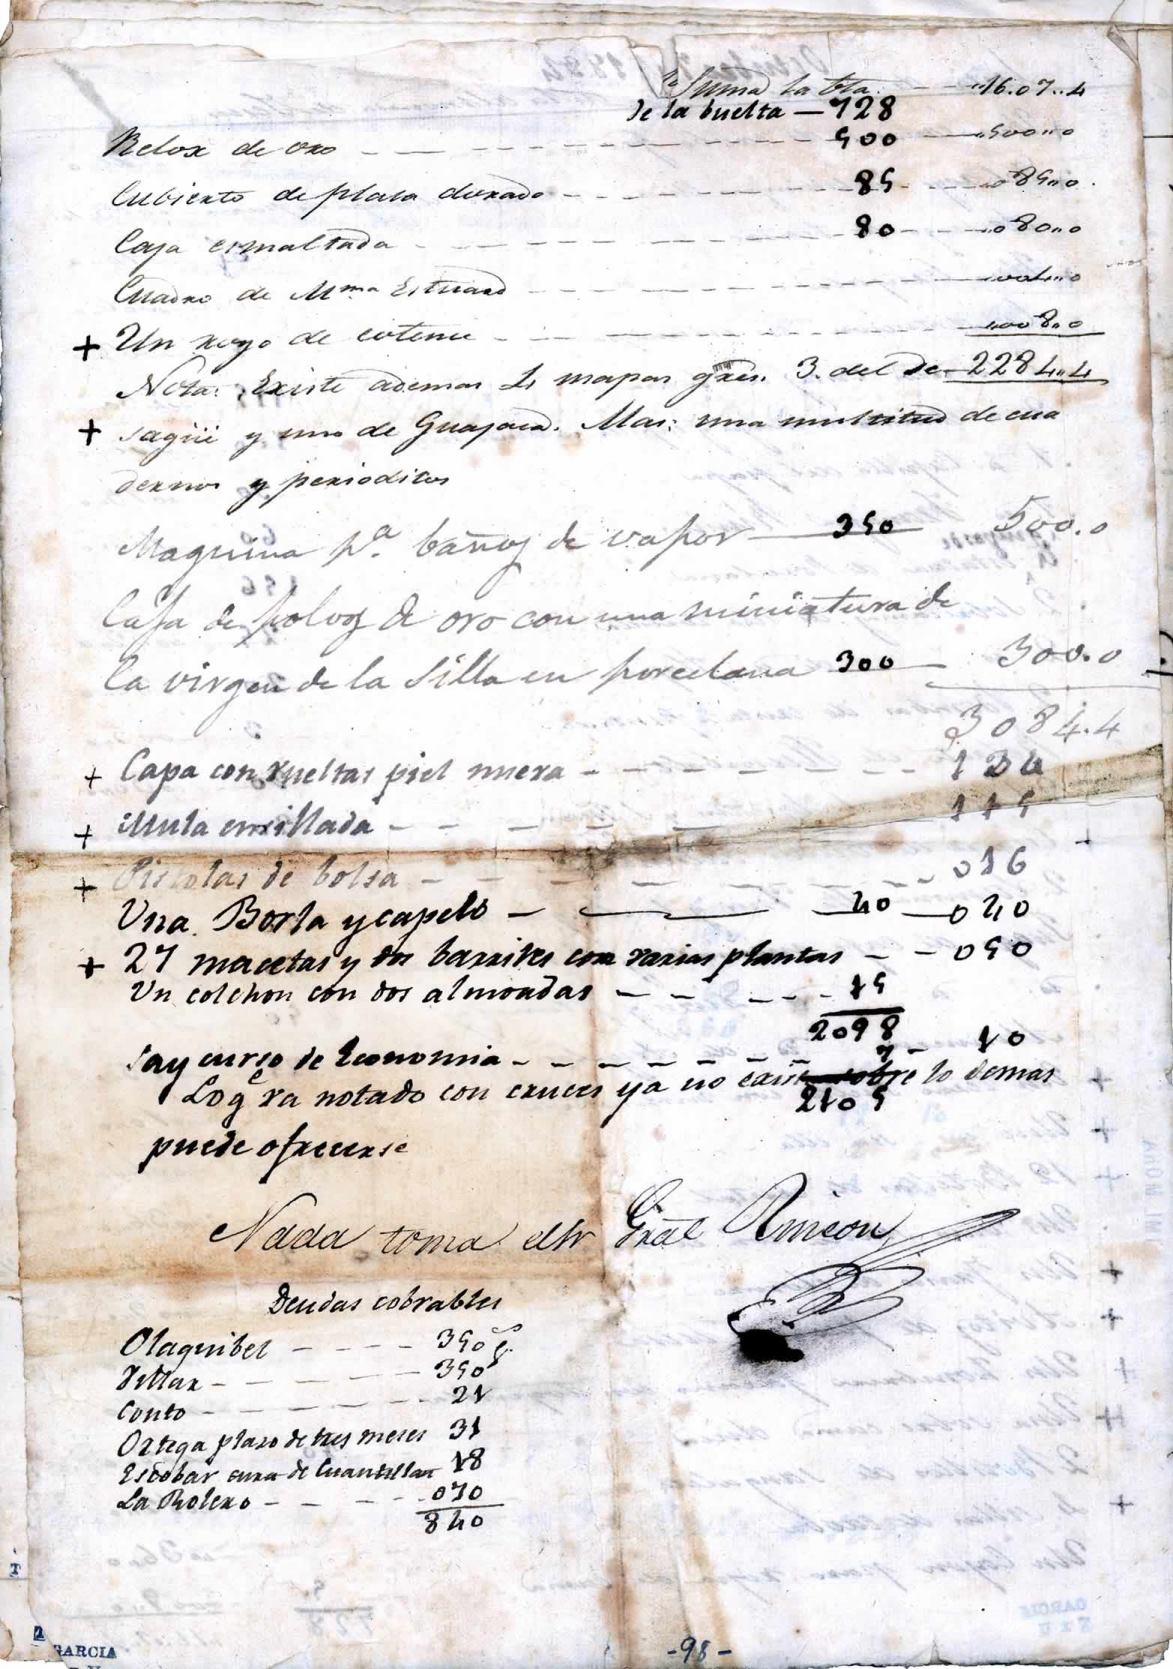 Suma la bta. — 16.07..4
de la buelta — 728
Relox de oro — 500 — 500..0
Cubierto de plata dorado — 85 — 085..0
Caja esmaltada — 80 — 080..0
Cuadro de Mma Estuard — 004..0
+ Un royo de cotense — 008..0
Nota: Existe ademas 4 mapas gres. 3. del De — 2284..4
+ sagüe y uno de Guajaca. Mas: una multitud de cua
dernos y perioditos
Maquina pa. baños de vapor — 350 — 500.0
Caja de polvos de oro con una miniatura de
la virgen de la Silla en porcelana 300 — 300.0
3084.4
+ Capa con vueltas piel nueva — 134
+ Mula ensillada — 115
+ Pistolas de bolsa — 016
Una Borla y capelo — 40 — 040
+ 27 macetas y dos barriles con varias plantas — 050
Un colchon con dos almoadas — 15
2098
Say curso de Economia — 7 — 10
Lo q.e va notado con cruces ya no existe sobre lo demas
2105
puede ofrecerse
Nada toma el Sr Gral Rincon
Deudas cobrables
Olaguibel — 350 p.s
Villar — 350
Couto — 21
Ortega plazo de tres meses 31
Escobar cura de Cuautitlan 18
La Bolero — 070
840
-98-
GARCIA